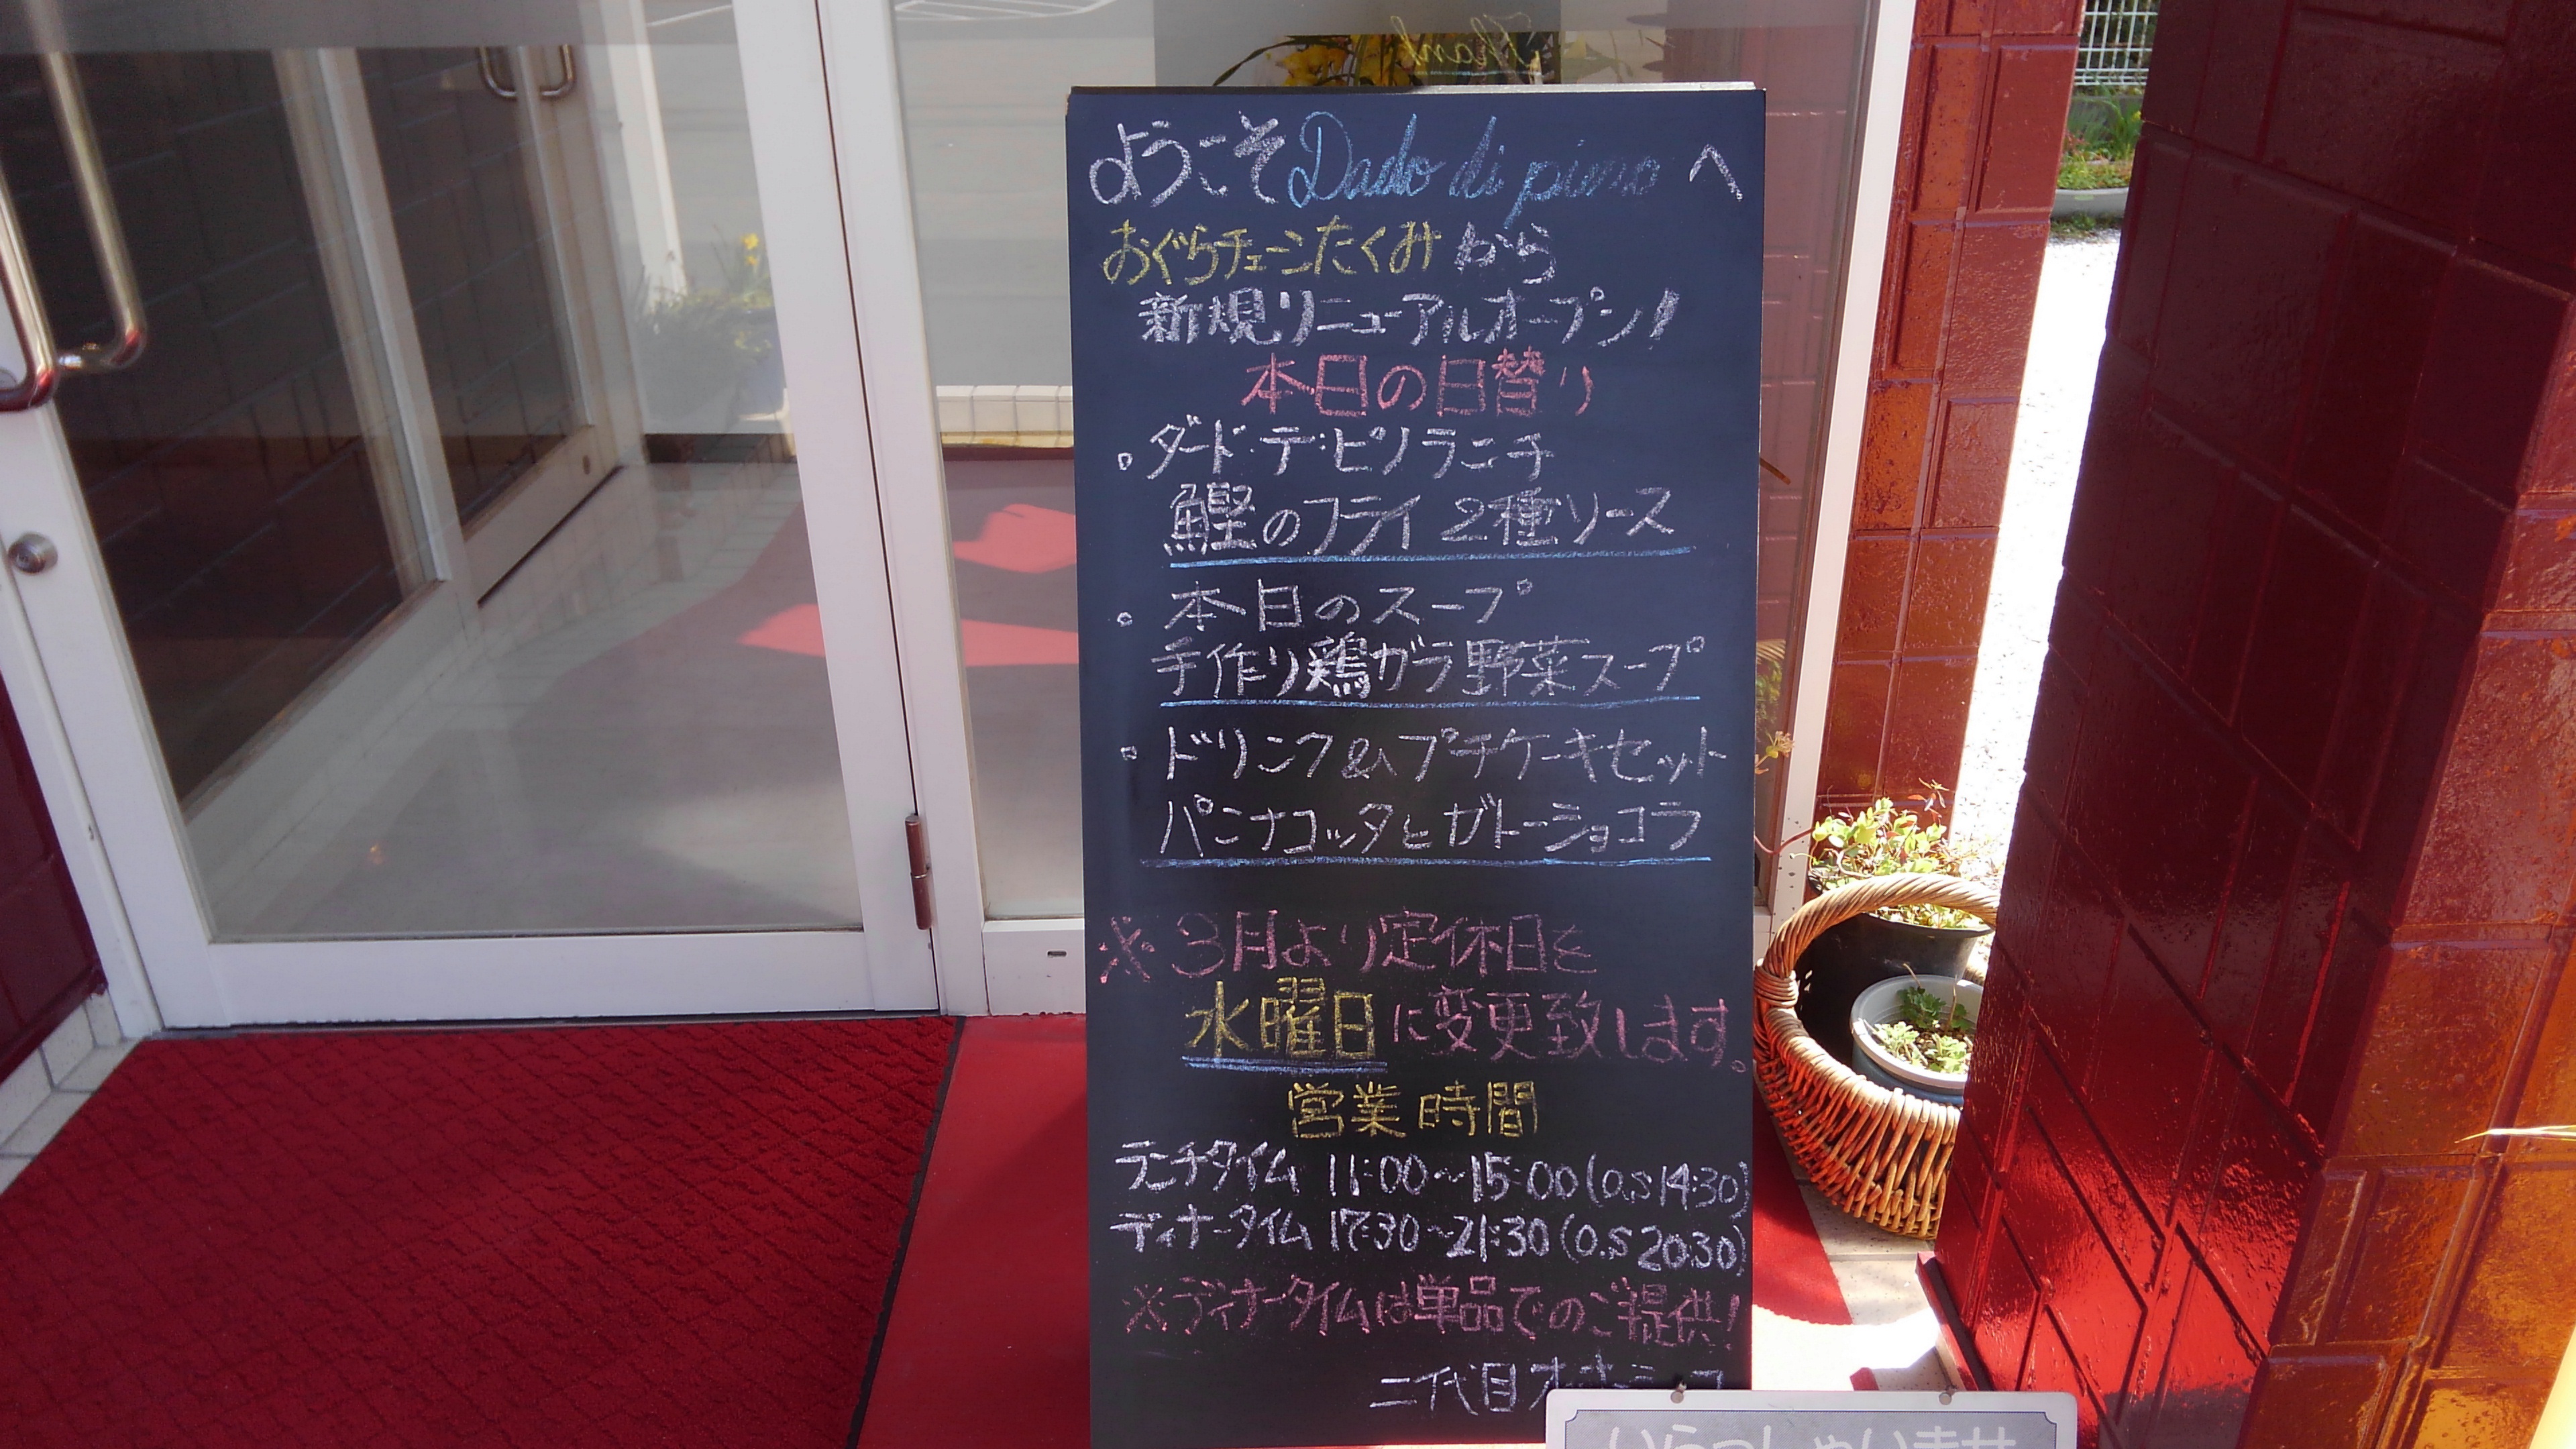 Thank
ようこそ Dado di pino へ
おぐらチェーンたくみから
新規リニューアルオープン!
本日の日替り
。ダード・デ・ピノランチ
鰹のフライ 2種ソース
。本日のスープ
手作り鶏ガラ野菜スープ
。ドリンク&プチケーキセット
パンナコッタとガトーショコラ
※3月より定休日を
水曜日に変更致します。
営業時間
ランチタイム 11:00~15:00(O.S14:30)
ディナータイム 17:30~21:30(O.S20:30)
※ディナータイムは単品でのご提供!
二代目オーナーシェフ
いらっしゃいませ